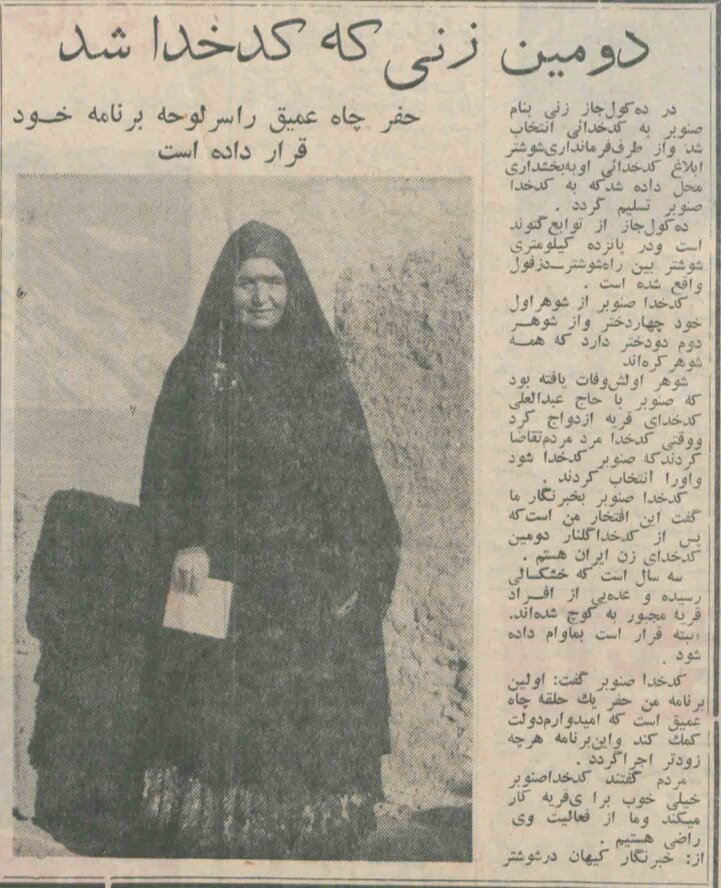 دومین زنی که کدخدا شد
حفر چاه عمیق راسرلوحه برنامه خود
قرار داده است
در ده‌کول‌جاز زنی بنام
صنوبر به کدخدائی انتخاب
شد واز طرف‌فرمانداری‌شوشتر
ابلاغ کدخدائی اوبه‌بخشداری
محل داده شدکه به کدخدا
صنوبر تسلیم گردد .
ده‌کول‌جاز از توابع‌گتوند
است ودر پانزده کیلومتری
شوشتر بین راه‌شوشتر ــ دزفول
واقع شده است .
کدخدا صنوبر از شوهراول
خود چهاردختر واز شوهر
دوم دودختر دارد که همه
شوهر کرده‌اند
شوهر اولش‌وفات یافته بود
که صنوبر با حاج عبدالعلی
کدخدای قریه ازدواج کرد
ووقتی کدخدا مرد مردم‌تقاضا
کردندکه صنوبر کدخدا شود
واورا انتخاب کردند .
کدخدا صنوبر بخبرنگار ما
گفت این افتخار من است‌که
پس از کدخداگلنار دومین
کدخدای زن ایران هستم .
سه سال است که خشکسالی
رسیده و عده‌یی از افراد
قریه مجبور به کوچ شده‌اند.
البته قرار است بماوام داده
شود .
کدخدا صنوبر گفت: اولین
برنامه من حفر یك حلقه چاه
عمیق است که امیدوارم‌دولت
کمك کند واین‌برنامه هرچه
زودتر اجراگردد .
مردم گفتند کدخداصنوبر
خیلی خوب برا ی‌قریه کار
میکند وما از فعالیت وی
راضی هستیم .
از: خبرنگار کیهان درشوشتر